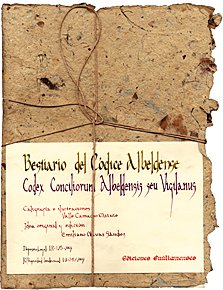 Bestiario del Códice Albeldense
Codex Conciliorum Albeldensis seu Vigilanus
Caligrafía e ilustraciones
Valle Camacho
Idea original y edición
Emiliano Navas Sánchez
Ediciones Emilianenses